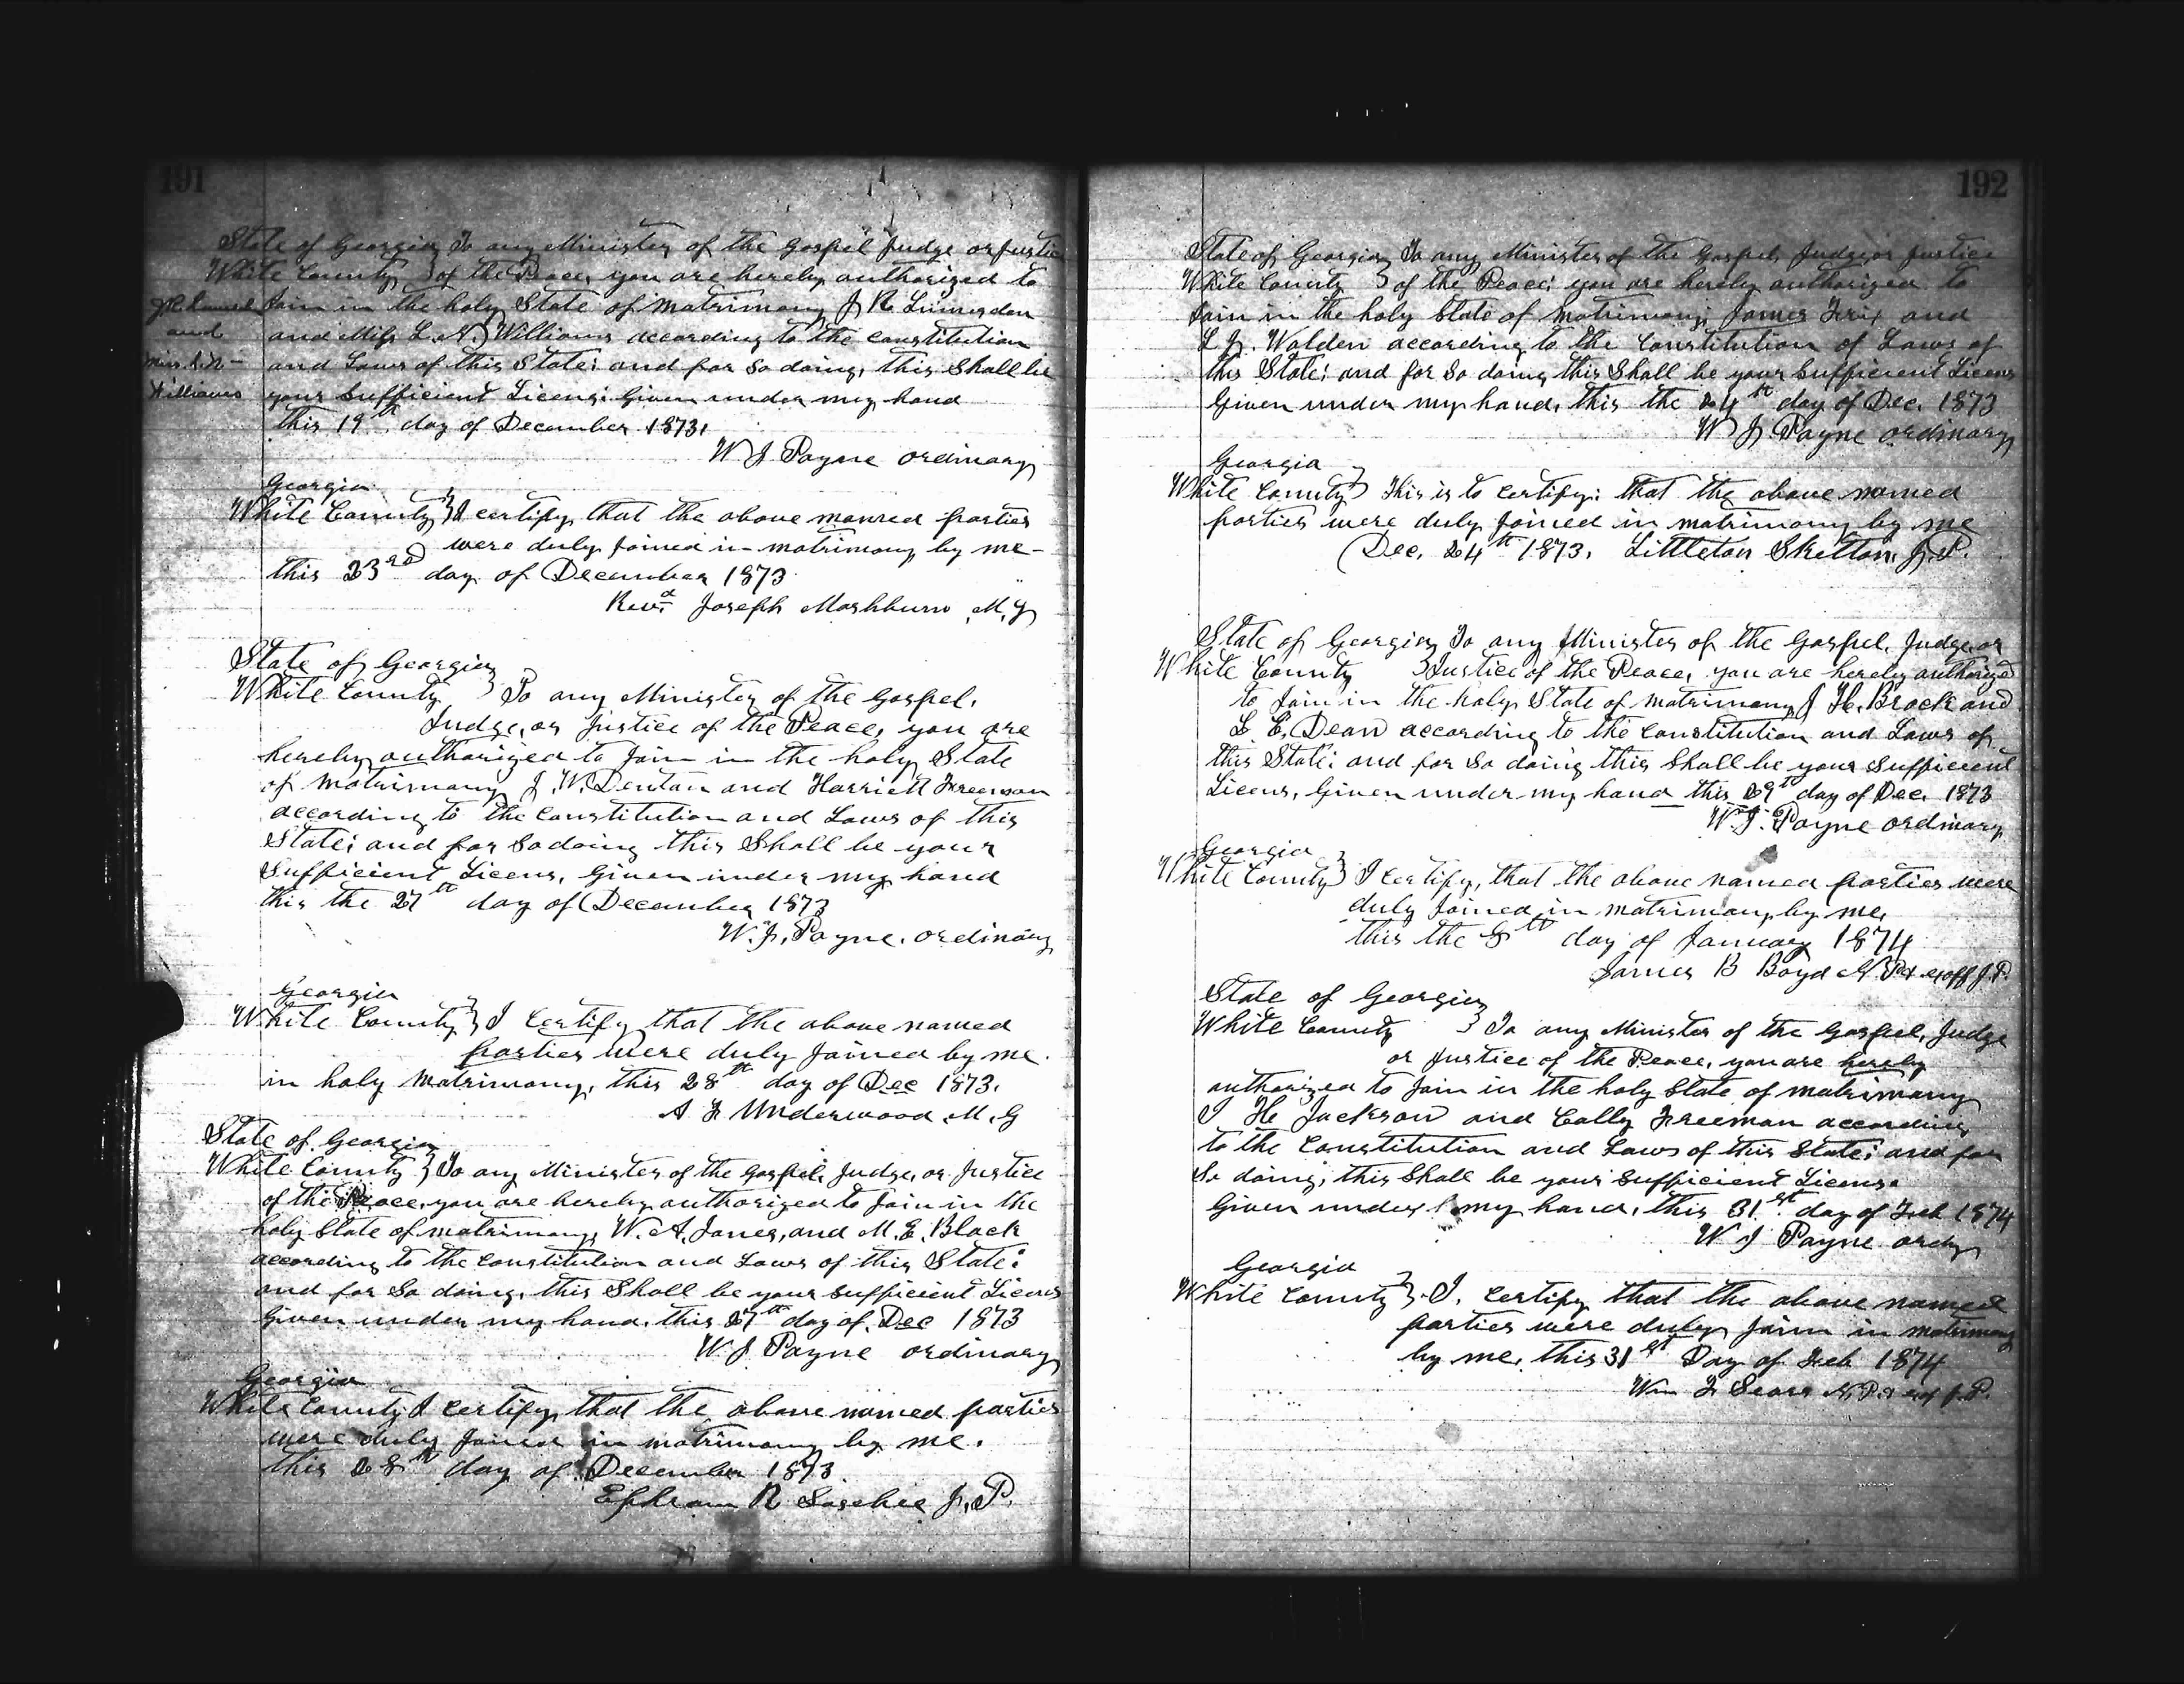 191
State of Georgia } To any Minister of the Gospel Judge or Justice
White County } of the Peace, you are hereby authorized to
Join in the holy State of matrimony J R Lumsden
and Miss L. N. Williams according to the constitution
and Laws of this State; and for So doing, this Shall be
your Sufficient Licens; Given under my hand
this 19th day of December 1873,
W J Payne ordinary
and
Miss L. N-
Williams
Georgia
White County } I certify that the above named parties
were duly Joined in matrimony by me-
this 23rd day of December 1873
Revd Joseph Mashburn, M, G
State of Georgia }
White County } To any Minister of the Gospel,
Judge, or Justice of the Peace, you are
hereby authorized to Join in the holy State
of matrimony J. W. Denton and Harriett Freeman
according to the Constitution and Laws of this
State; and for So doing this Shall be your
Sufficient Licens, Given under my hand
this the 27th day of December 1873
W. J, Payne, ordinary
Georgia
White County } I Certify that the above named
parties were duly Joined by me
in holy Matrimony, this 28th day of Dec 1873.
A F Underwood, M, G
State of Georgia
White County } To any Minister of the Gospel, Judge, or Justice
of the Peace, you are hereby authorized to Join in the
holy State of matrimony, W. A. Jones, and M. E. Black
according to the Constitution and Laws of this State;
and for So doing, this Shall be your Sufficient Licens
Given under my hand, this 27th day of Dec 1873
W. J Payne ordinary
Georgia
White County I Certify, that the above named parties
were duly Joined in matrimony by me.
this 28th day of December 1873
Ephram R J. P.
192
State of Georgia } To any Minister of the Gospel, Judge or Justice
White County } of the Peace; you are hereby authorized to
Join in the holy State of matrimony James and
L. J. Walden according to the Constitution of Laws of
this State; and for So doing this Shall be your Sufficient Licens
Given under my hand, this the 24th day of Dec. 1873
W J. Payne ordinary
Georgia
White County } This is to Certify; that the above named
parties were duly Joined in matrimony by me
Dec, 24th 1873, Littleton Shelton, J. P.
State of Georgia } To any Minister of the Gospel, Judge or
White County } Justice of the Peace, you are hereby authorized
to Join in the holy State of matrimony J H. Brock and
L E, Dean according to the Constitution and Laws of
this State; and for So doing this Shall be your Sufficient
Licens, Given under my hand this 29th day of Dec. 1873
W. J. Payne ordinary
Georgia
White County } I Certify, that the above named parties were
duly Joined in matrimony by me,
this the 8th day of January 1874
James B Boyd N. P & exoff J. P.
State of Georgia }
White County } To any Minister of the Gospel, Judge
or Justice of the Peace, you are hereby
authorized to Join in the holy State of matrimony
J H Jackson and Cally Freeman according
to the Constitution and Laws of this State; and for
So doing, this Shall be your Sufficient Licens.
Given under my hand, this 31st day of Feb 1874
W J Payne ordy
Georgia
White County } I, Certify that the above named
parties were duly Join in matrimony
by me, this 31st Day of Feb 1874
Wm F Sears N. P & exf J. P.